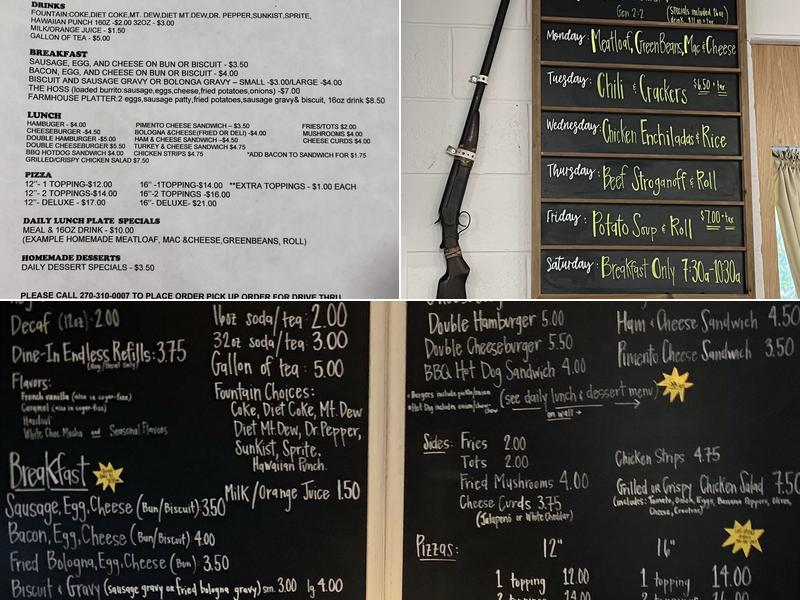 DRINKS
FOUNTAIN:COKE,DIET COKE,MT. DEW,DIET MT.DEW,DR. PEPPER,SUNKIST,SPRITE,
HAWAIIAN PUNCH 16OZ -$2.00 32OZ - $3.00
MILK/ORANGE JUICE - $1.50
GALLON OF TEA - $5.00
BREAKFAST
SAUSAGE, EGG, AND CHEESE ON BUN OR BISCUIT - $3.50
BACON, EGG, AND CHEESE ON BUN OR BISCUIT - $4.00
BISCUIT AND SAUSAGE GRAVY OR BOLONGA GRAVY – SMALL -$3.00/LARGE -$4.00
THE HOSS (loaded burrito:sausage,eggs,cheese,fried potatoes,onions) -$7.00
FARMHOUSE PLATTER:2 eggs,sausage patty,fried potatoes,sausage gravy& biscuit, 16oz drink $8.50
LUNCH
HAMBUGER - $4.00 PIMENTO CHEESE SANDWICH – $3.50 FRIES/TOTS $2.00
CHEESEBURGER -$4.50 BOLOGNA &CHEESE(FRIED OR DELI) -$4.00 MUSHROOMS $4.00
DOUBLE HAMBURGER -$5.00 HAM & CHEESE SANDWICH –$4.50 CHEESE CURDS $4.00
DOUBLE CHEESEBURGER $5.50 TURKEY & CHEESE SANDWICH $4.75
BBQ HOTDOG SANDWICH $4.00 CHICKEN STRIPS $4.75 *ADD BACON TO SANDWICH FOR $1.75
GRILLED/CRISPY CHICKEN SALAD $7.50
PIZZA
12"- 1 TOPPING-$12.00 16" -1TOPPING-$14.00 **EXTRA TOPPINGS - $1.00 EACH
12"- 2 TOPPINGS-$14.00 16"-2 TOPPINGS -$16.00
12"- DELUXE - $17.00 16"- DELUXE- $21.00
DAILY LUNCH PLATE SPECIALS
MEAL & 16OZ DRINK - $10.00
(EXAMPLE HOMEMADE MEATLOAF, MAC &CHEESE,GREENBEANS, ROLL)
HOMEMADE DESSERTS
DAILY DESSERT SPECIALS - $3.50
PLEASE CALL 270-310-0007 TO PLACE ORDER PICK UP ORDER FOR DRIVE THRU
Gen 2:2
(specials included 16oz
Monday: Meatloaf, GreenBeans, Mac & Cheese
Tuesday: Chili & Crackers $6.50 + tax
Wednesday: Chicken Enchiladas & Rice
Thursday: Beef Stroganoff & Roll
Friday: Potato Soup & Roll $7.00 + tax
Saturday: Breakfast Only 7:30a-10:30a
Decaf (12oz)-2.00
Dine-In Endless Refills: 3.75
Flavors:
French vanilla (also in sugar-free)
Caramel (also in sugar-free)
Hazelnut
White Choc Mocha and Seasonal Flavors
16oz soda/tea: 2.00
32oz soda/tea: 3.00
Gallon of tea: 5.00
Fountain Choices:
Coke, Diet Coke, Mt. Dew
Diet Mt.Dew, Dr. Pepper,
Sunkist, Sprite.
Hawaiian Punch.
Milk/Orange Juice 1.50
Breakfast
Sausage, Egg, Cheese (Bun/Biscuit) 3.50
Bacon, Egg, Cheese (Bun/Biscuit) 4.00
Fried Bologna, Egg, Cheese (Bun): 3.50
Biscuit & Gravy (sausage gravy or fried bologna gravy) sm. 3.00 lg. 4.00
Double Hamburger 5.00
Double Cheeseburger 5.50
BBQ Hot Dog Sandwich 4.00
Ham & Cheese Sandwich 4.50
Pimento Cheese Sandwich 3.50
(see daily lunch & dessert menu)
on wall
Sides: Fries 2.00
Tots 2.00
Fried Mushrooms 4.00
Cheese Curds 3.75
(Jalapeño or White Cheddar)
Chicken Strips 4.75
Grilled or Crispy Chicken Salad 7.50
(includes: Tomato, Onion, Eggs, Banana Peppers, Olives,
Cheese, Croutons)
Pizzas: 12" 16"
1 topping 12.00 1 topping 14.00